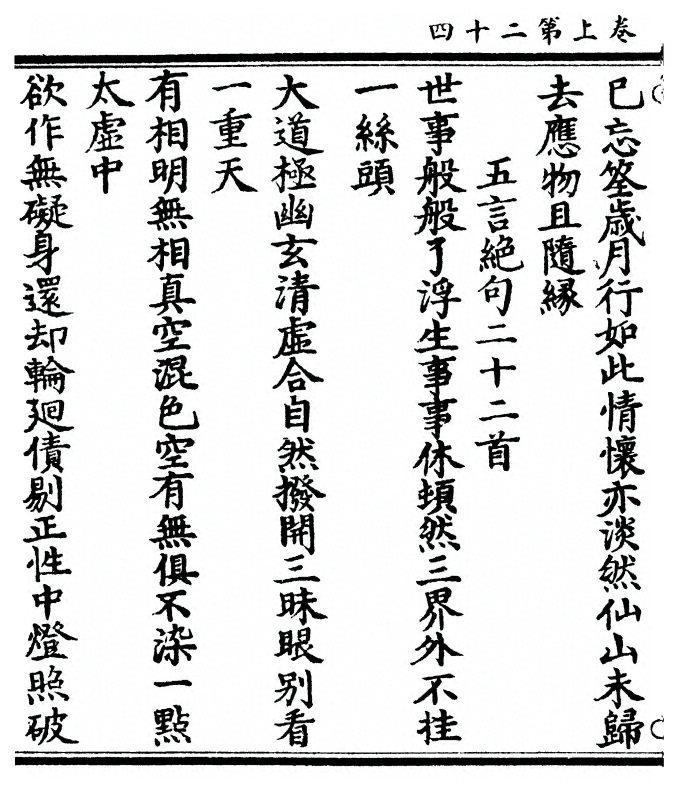 卷上第二十四
已忘筌歳月行如此情懷亦淡然仙山未歸
去應物且隨縁
五言絕句二十二首
世事般般了浮生事事休頓然三界外不挂
一絲頭
大道極幽玄清虛合自然撥開三昧眼别看
一重天
有相明無相真空混色空有無俱不染一點
太虛中
欲作無礙身還却輪廻債剔正性中燈照破